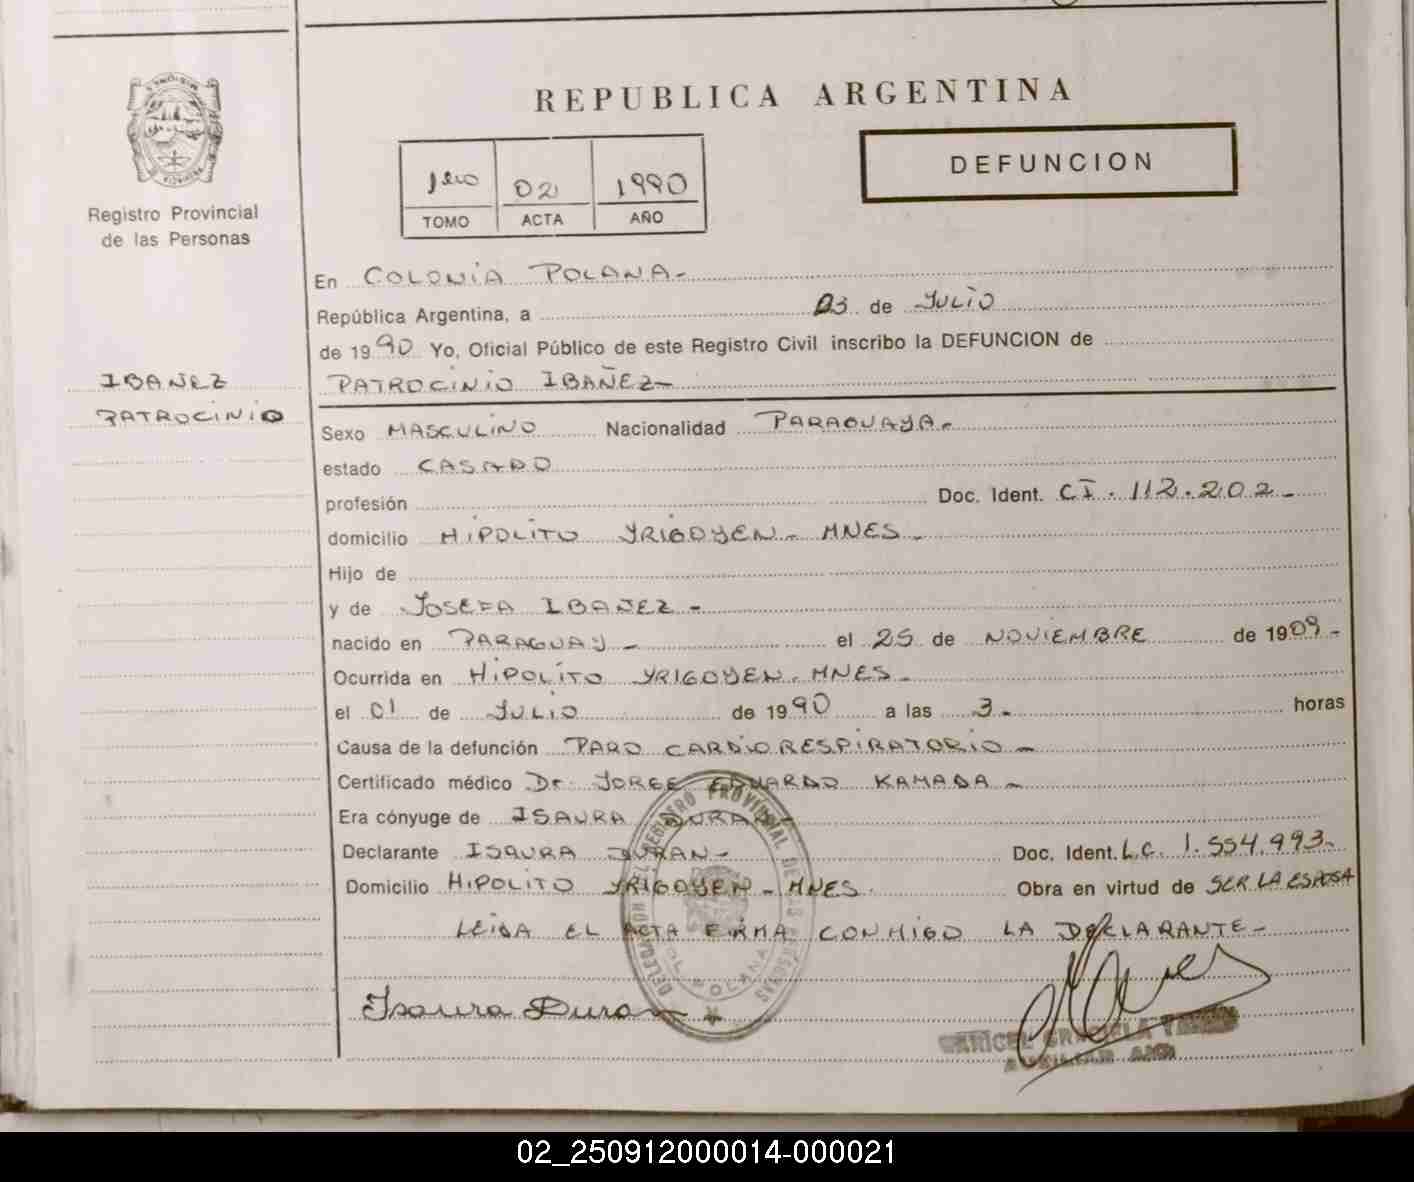 REPUBLICA ARGENTINA
DEFUNCION
1ero 02 1990
TOMO ACTA AÑO
Registro Provincial
de las Personas
En COLONIA POLANA-
República Argentina, a 03 de JULIO
de 1990 Yo, Oficial Público de este Registro Civil inscribo la DEFUNCION de
IBANEZ
PATROCINIO
PATROCINIO IBAÑEZ-
Sexo MASCULINO Nacionalidad PARAGUAYA.
estado CASADO
profesión Doc. Ident. CI. 112.202-
domicilio HIPOLITO YRIGOYEN- MNES-
Hijo de
y de JOSEFA IBANEZ-
nacido en PARAGUAY- el 25 de NOVIEMBRE de 1909-
Ocurrida en HIPOLITO YRIGOYEN. MNES-
el 01 de JULIO de 1990 a las 3- horas
Causa de la defunción PARO CARDIORESPIRATORIO-
Certificado médico Dr. JORGE EDUARDO KAMADA-
Era cónyuge de ISAURA DURAN-
Declarante ISAURA DURAN- Doc. Ident. L.C. 1.554.993-
Domicilio HIPOLITO YRIGOYEN- MNES. Obra en virtud de SER LA ESPOSA
LEIDA EL ACTA FIRMA CONMIGO LA DECLARANTE-
DELEGACION DEL REGISTRO PROVINCIAL DE LAS PERSONAS
COL. POLANA
Isaura Duran
MARICEL GRACIELA
AUXILIAR
02_250912000014-000021